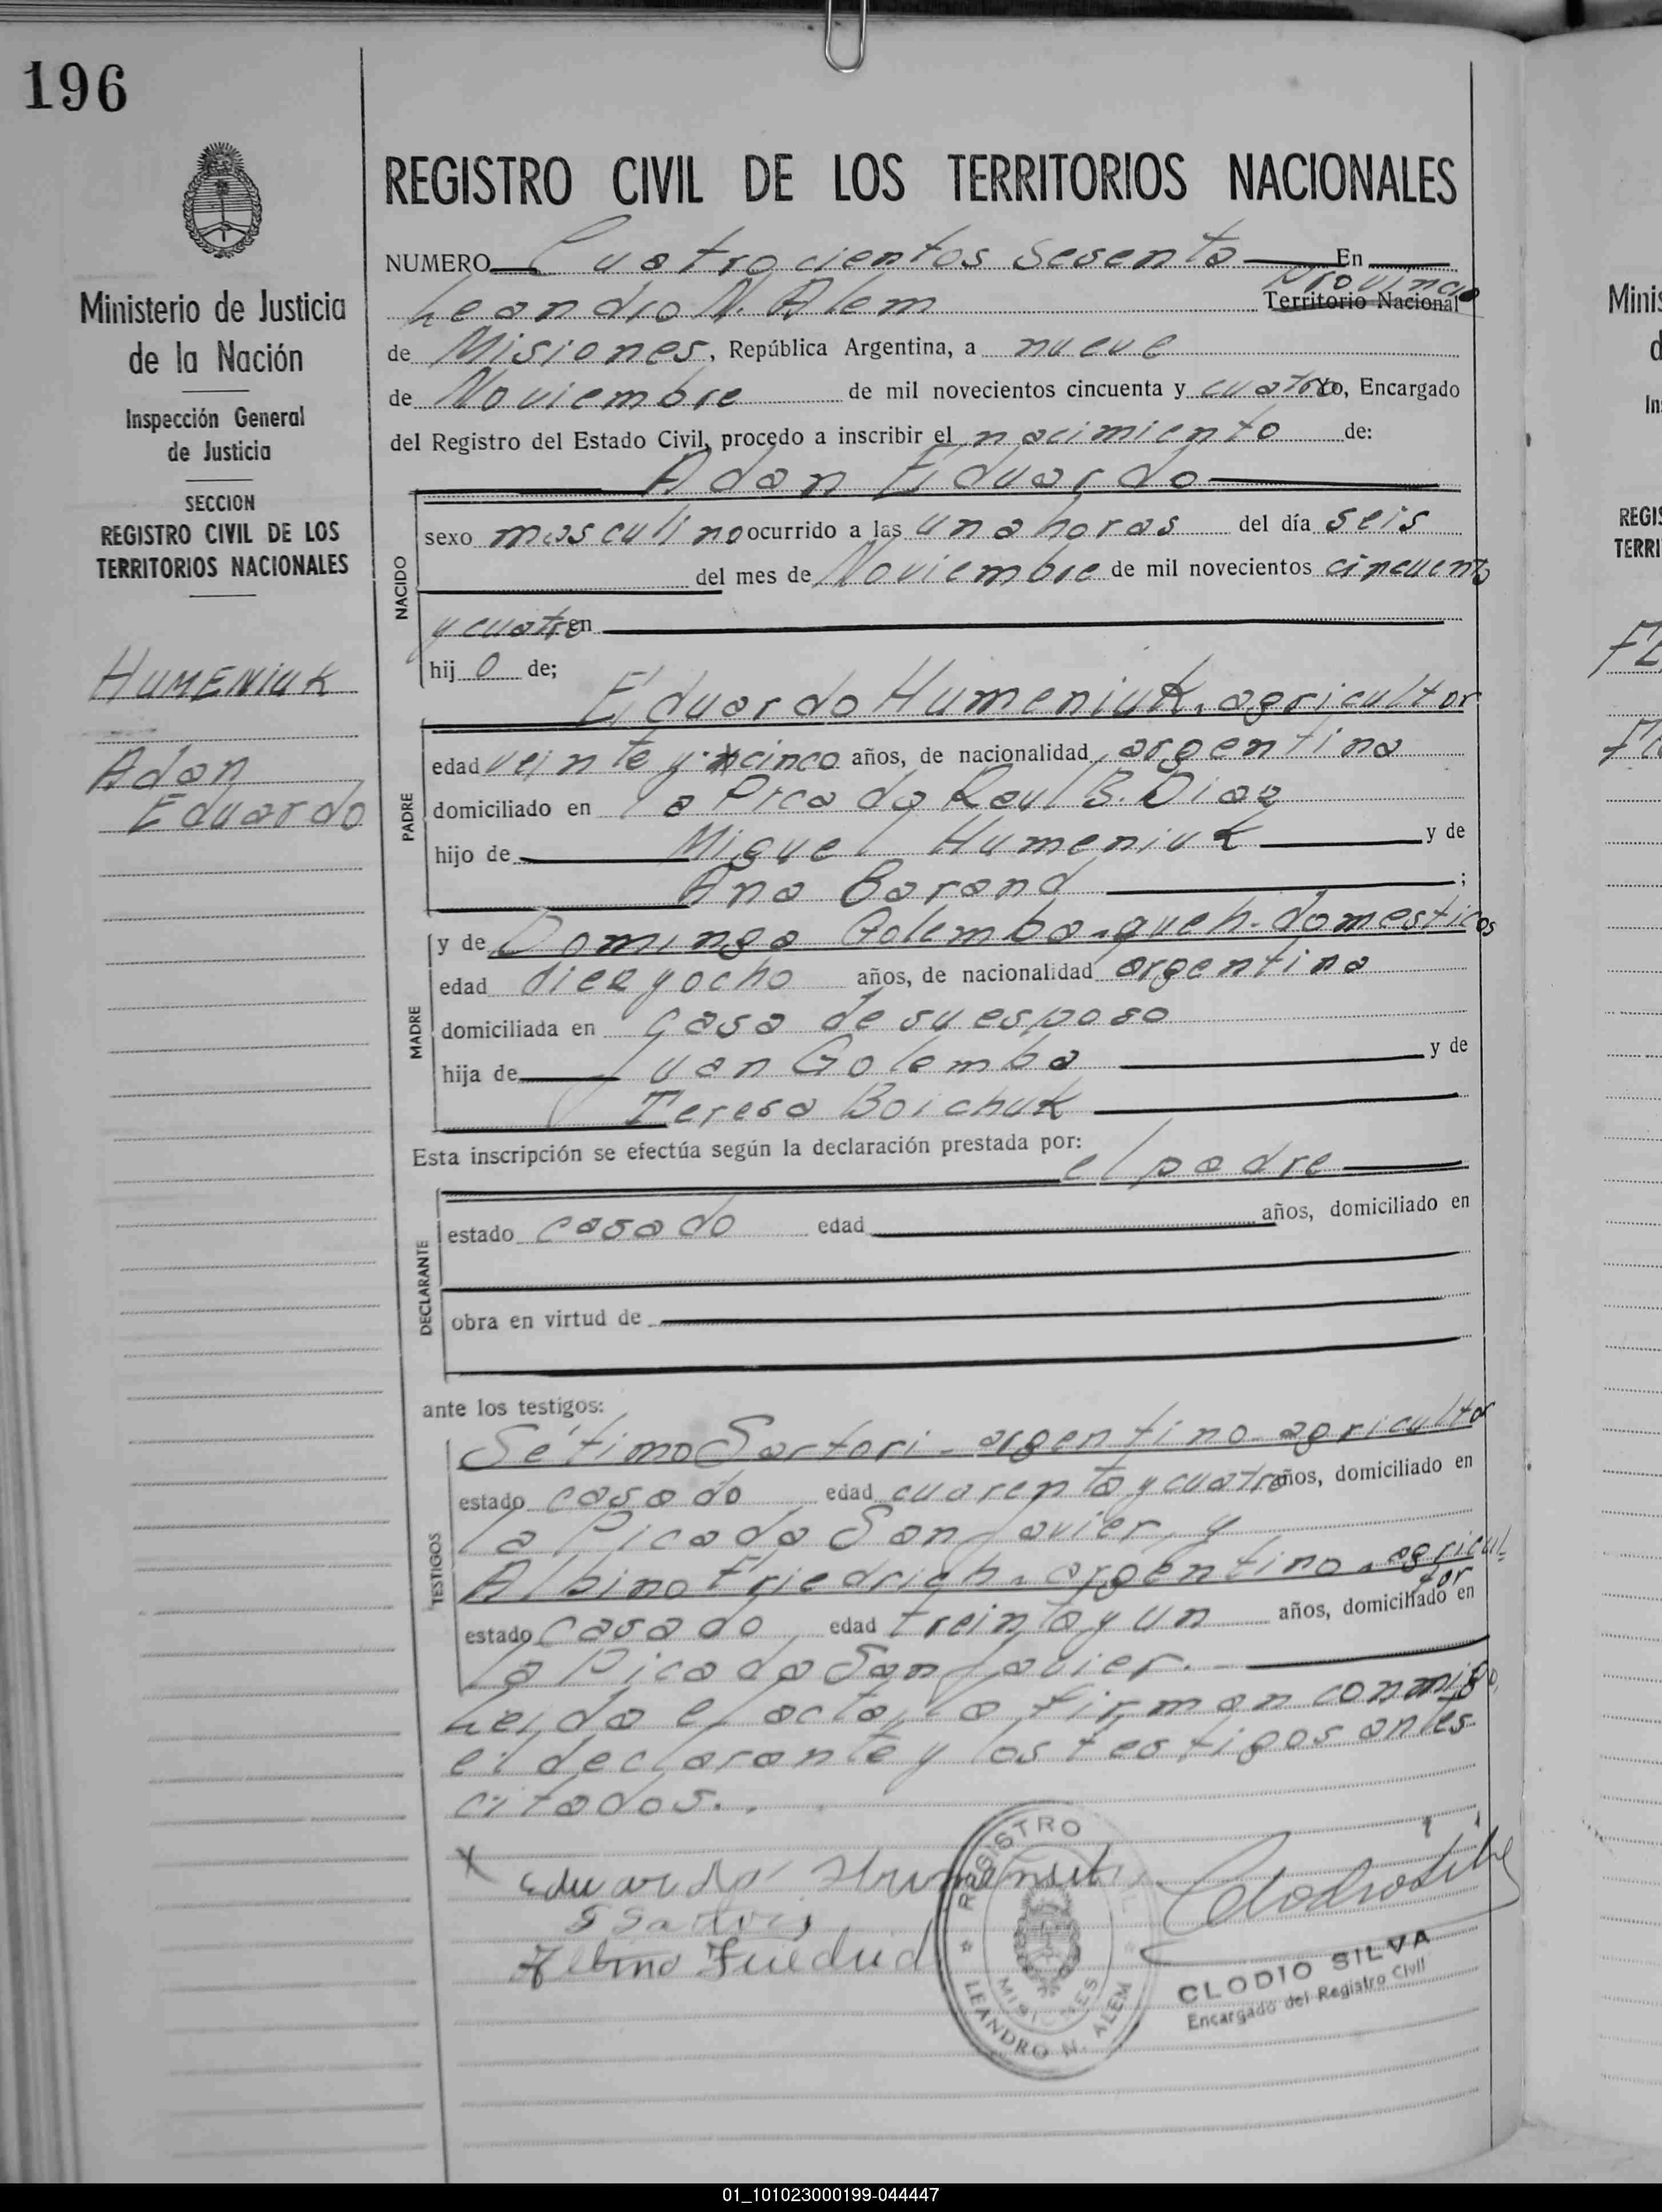 196
REGISTRO CIVIL DE LOS TERRITORIOS NACIONALES
Ministerio de Justicia
de la Nación
Inspección General
de Justicia
SECCION
REGISTRO CIVIL DE LOS
TERRITORIOS NACIONALES
HUMENIUK
Adan
Eduardo
NUMERO Cuatrocientos sesenta En
Provincia
Leandro N. Alem Territorio Nacional
de Misiones, República Argentina, a nueve
de Noviembre de mil novecientos cincuenta y cuatro Yo, Encargado
del Registro del Estado Civil, procedo a inscribir el nacimiento de:
Adan Eduardo
NACIDO
sexo masculino ocurrido a las una horas del día seis
del mes de Noviembre de mil novecientos cincuenta
y cuatro en
hij o de;
Eduardo Humeniuk. agricultor
PADRE
edad veinte y cinco años, de nacionalidad argentina
domiciliado en la Picada Raul B. Diaz
hijo de Miguel Humeniuk y de
Ana Barand ;
MADRE
y de Dominga Golemba. queh. domesticos
edad diez y ocho años, de nacionalidad argentina
domiciliada en casa de su esposo
hija de Juan Golemba y de
Teresa Boichuk
Esta inscripción se efectúa según la declaración prestada por:
el padre
DECLARANTE
estado casado edad años, domiciliado en
obra en virtud de
ante los testigos:
TESTIGOS
Sétimo Sartori - argentino - agricultor
estado casado edad cuarenta y cuatro años, domiciliado en
la Picada San Javier y
Albino Friedrich. argentino. agricul-
tor
estado casado edad treinta y un años, domiciliado en
la Picada San Javier.
Leida el acta, la firman conmigo,
el declarante y los testigos antes
citados.
X Eduardo Humeniuk
S Sartori
Albino Friedrich
REGISTRO
MISIONES
LEANDRO N. ALEM
CLODIO SILVA
Encargado del Registro Civil
Minis
d
In
REGIS
TERRI
01_101023000199-044447